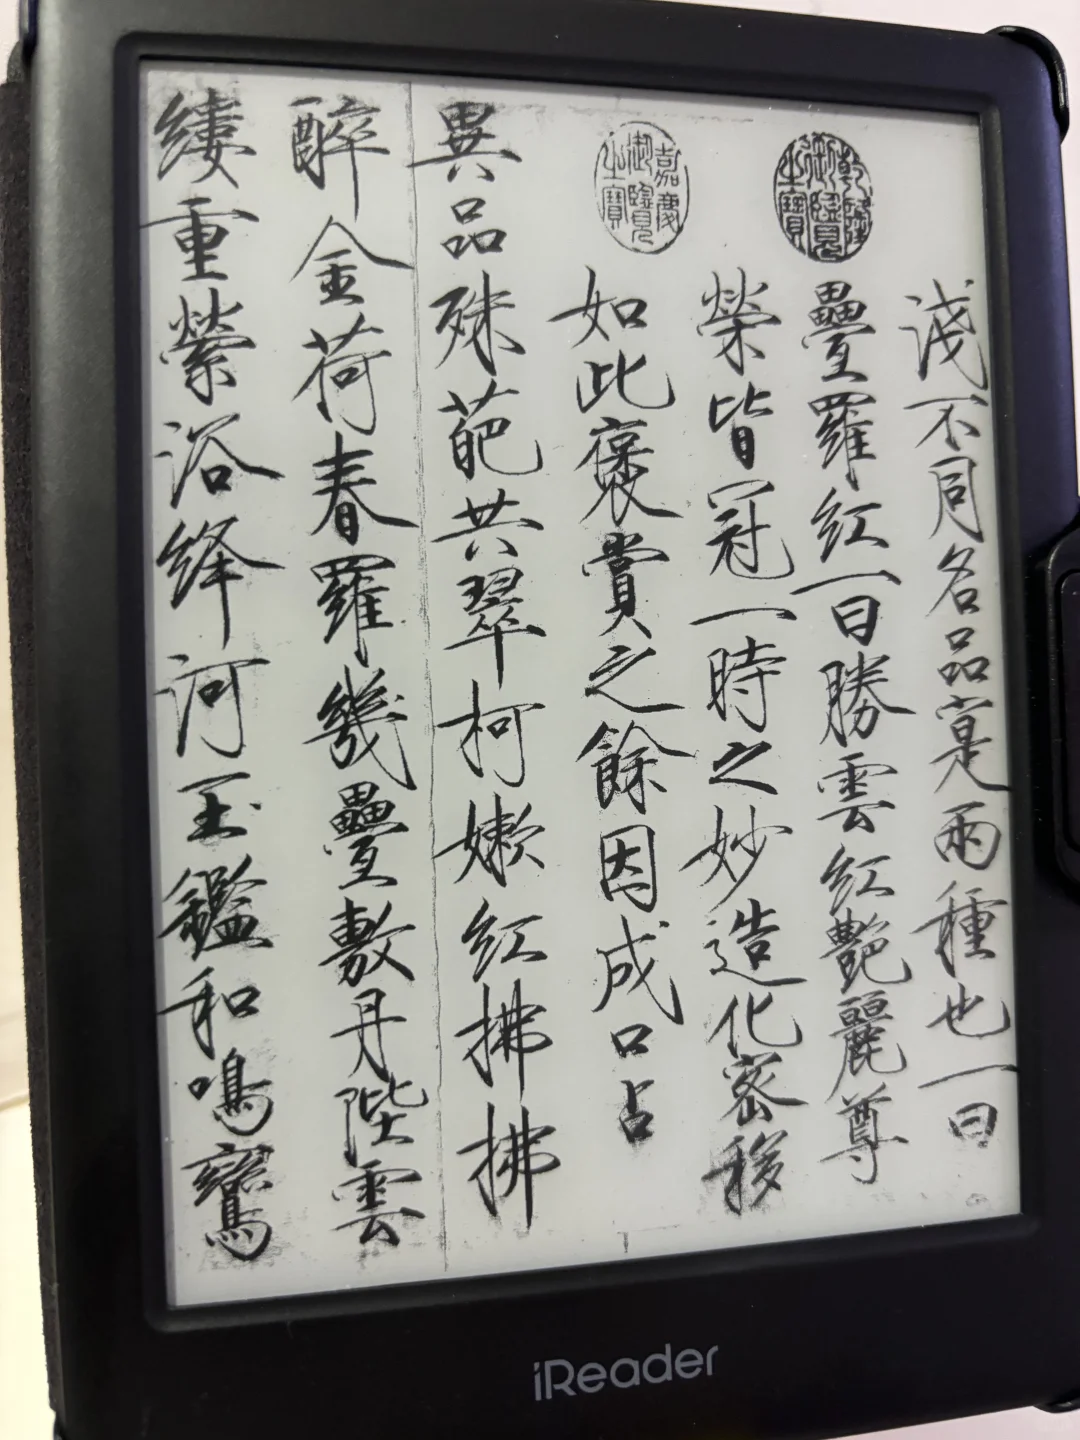 淺不同名品寔兩種也一曰
疊羅紅一曰勝雲紅艷麗尊
榮皆冠一時之妙造化密移
如此褒賞之餘因成口占
異品殊葩共翠柯嫩紅拂拂
醉金荷春羅幾疊敷丹陛雲
縷重縈浴絳河玉鑑和鳴鸞
乾隆御覽之寶
嘉慶御覽之寶
iReader